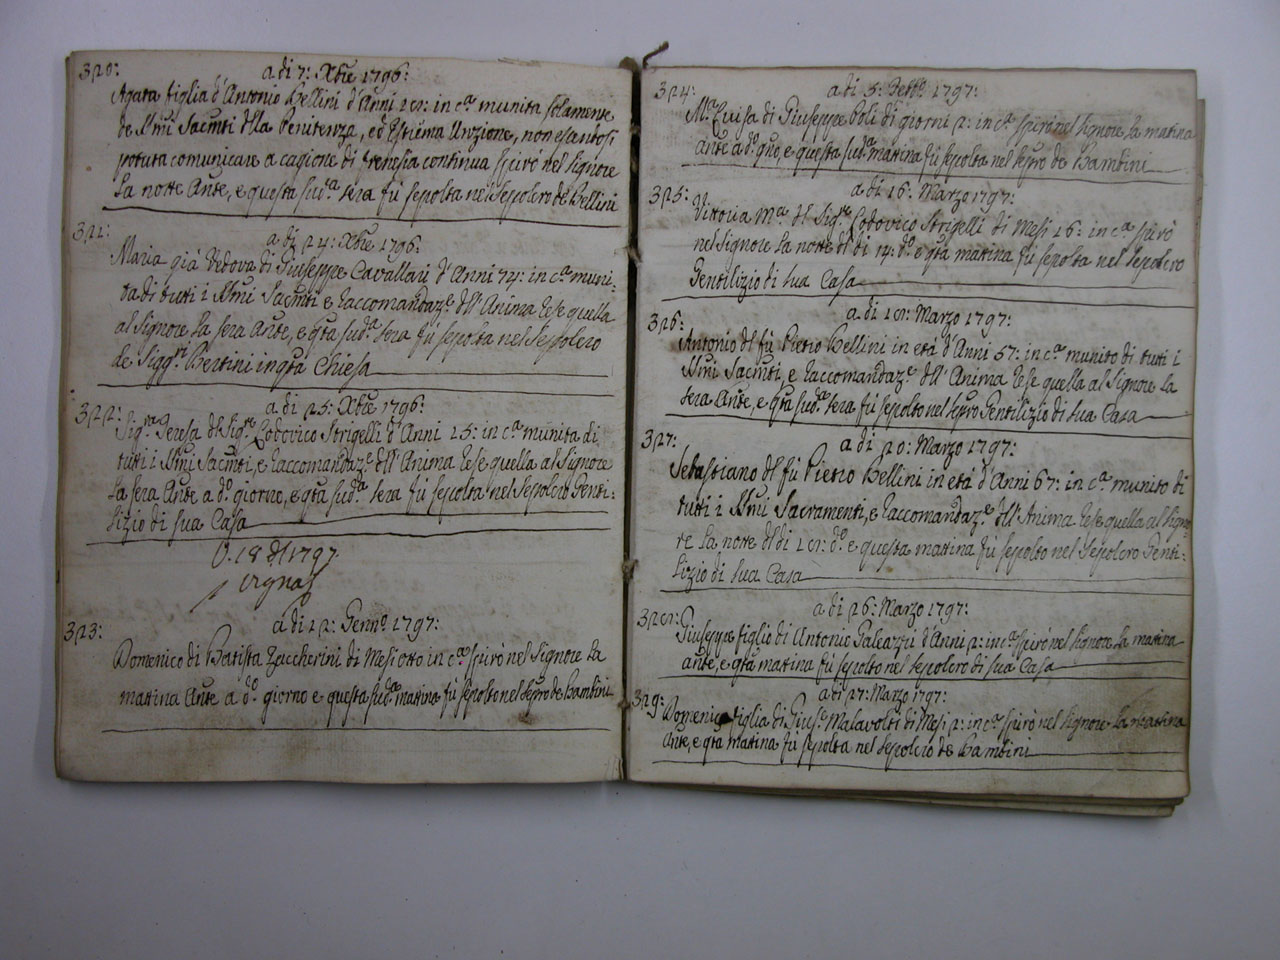 320:
a di 7: Xbre 1796:
Agata figlia d'Antonio Bellini d'Anni in c.a munita solamente
de SSmi Sacmti d'la Penitenza, ed Estrema Unzione, non essendosi
potuta comunicare a cagione di frenesia continua spirò nel Signore
la notte Ante, e questa sud.a sera fù sepolta nel Sepolcro de Bellini
321:
a di 24: Xbre 1796:
Maria già Vedova di Giuseppe Cavallari d'Anni 74: in c.a muni-
ta di tutti i SSmi Sacmti e raccomandaz.e dll'Anima rese quella
al Signore la sera Ante, e qta sud.a sera fù sepolta nel Sepolcro
de Sigg.ri Bertini in qta Chiesa
322:
a di 25: Xbre 1796:
Sig.ra Teresa dl Sig.re Lodovico Strigelli d'Anni 15: in c.a munita di
tutti i SSmi Sacmti, e raccomandaz.e dll'Anima rese quella al Signore
la sera Ante a d.o giorno, e qta sud.a sera fù sepolta nel Sepolcro Genti-
lizio di sua Casa
V. 18 dl 1797
323:
a di 12: Genn.o 1797:
Domenico di Battista Zaccherini di Mesi otto in c.a spirò nel Signore la
mattina Ante a d.o giorno e questa sud.a mattina fù sepolto nel sepro de Bambini
324:
a di 5: Febb.o 1797:
M.a Luisa di Giuseppe Poli di giorni 2: in c.a spirò nel Signore la matina
ante a d.o gno, e questa sud.a mattina fù sepolta nel sepro de Bambini
325:
a di 16: Marzo 1797:
Vittoria M.a dl Sig.re Lodovico Strigelli di Mesi 16: in c.a spirò
nel Signore la notte dl di 14: d.o e qta matina fù sepolta nel sepolcro
Gentilizio di sua Casa
326:
Marzo 1797:
Antonio dl fù Pietro Bellini in età d'Anni 57: in c.a munito di tutti i
SSmi Sacmti, e raccomandaz.e dll'Anima rese quella al Signore la
sera Ante, e qta sud.a sera fù sepolto nel sepro Gentilizio di sua Casa
327:
a di 20: Marzo 1797:
Sebastiano dl fù Pietro Bellini in età d'Anni 67: in c.a munito di
tutti i SSmi Sacramenti, e raccomandaz.e dll'Anima rese quella al Signo-
re la notte dl di d.o e questa mattina fù sepolto nel Sepolcro Genti-
lizio di sua Casa
a di 26: Marzo 1797:
Giuseppe figlio di Antonio Galeazzi d'Anni 2: in c.a spirò nel Signore la mattina
ante, e qta mattina fù sepolto nel sepolcro di sua Casa
329:
a di 27: Marzo 1797:
Domenica figlia di Gius.e Malavolti di Mesi 2: in c.a spirò nel Signore la mattina
Ante, e qta mattina fù sepolta nel sepolcro de Bambini